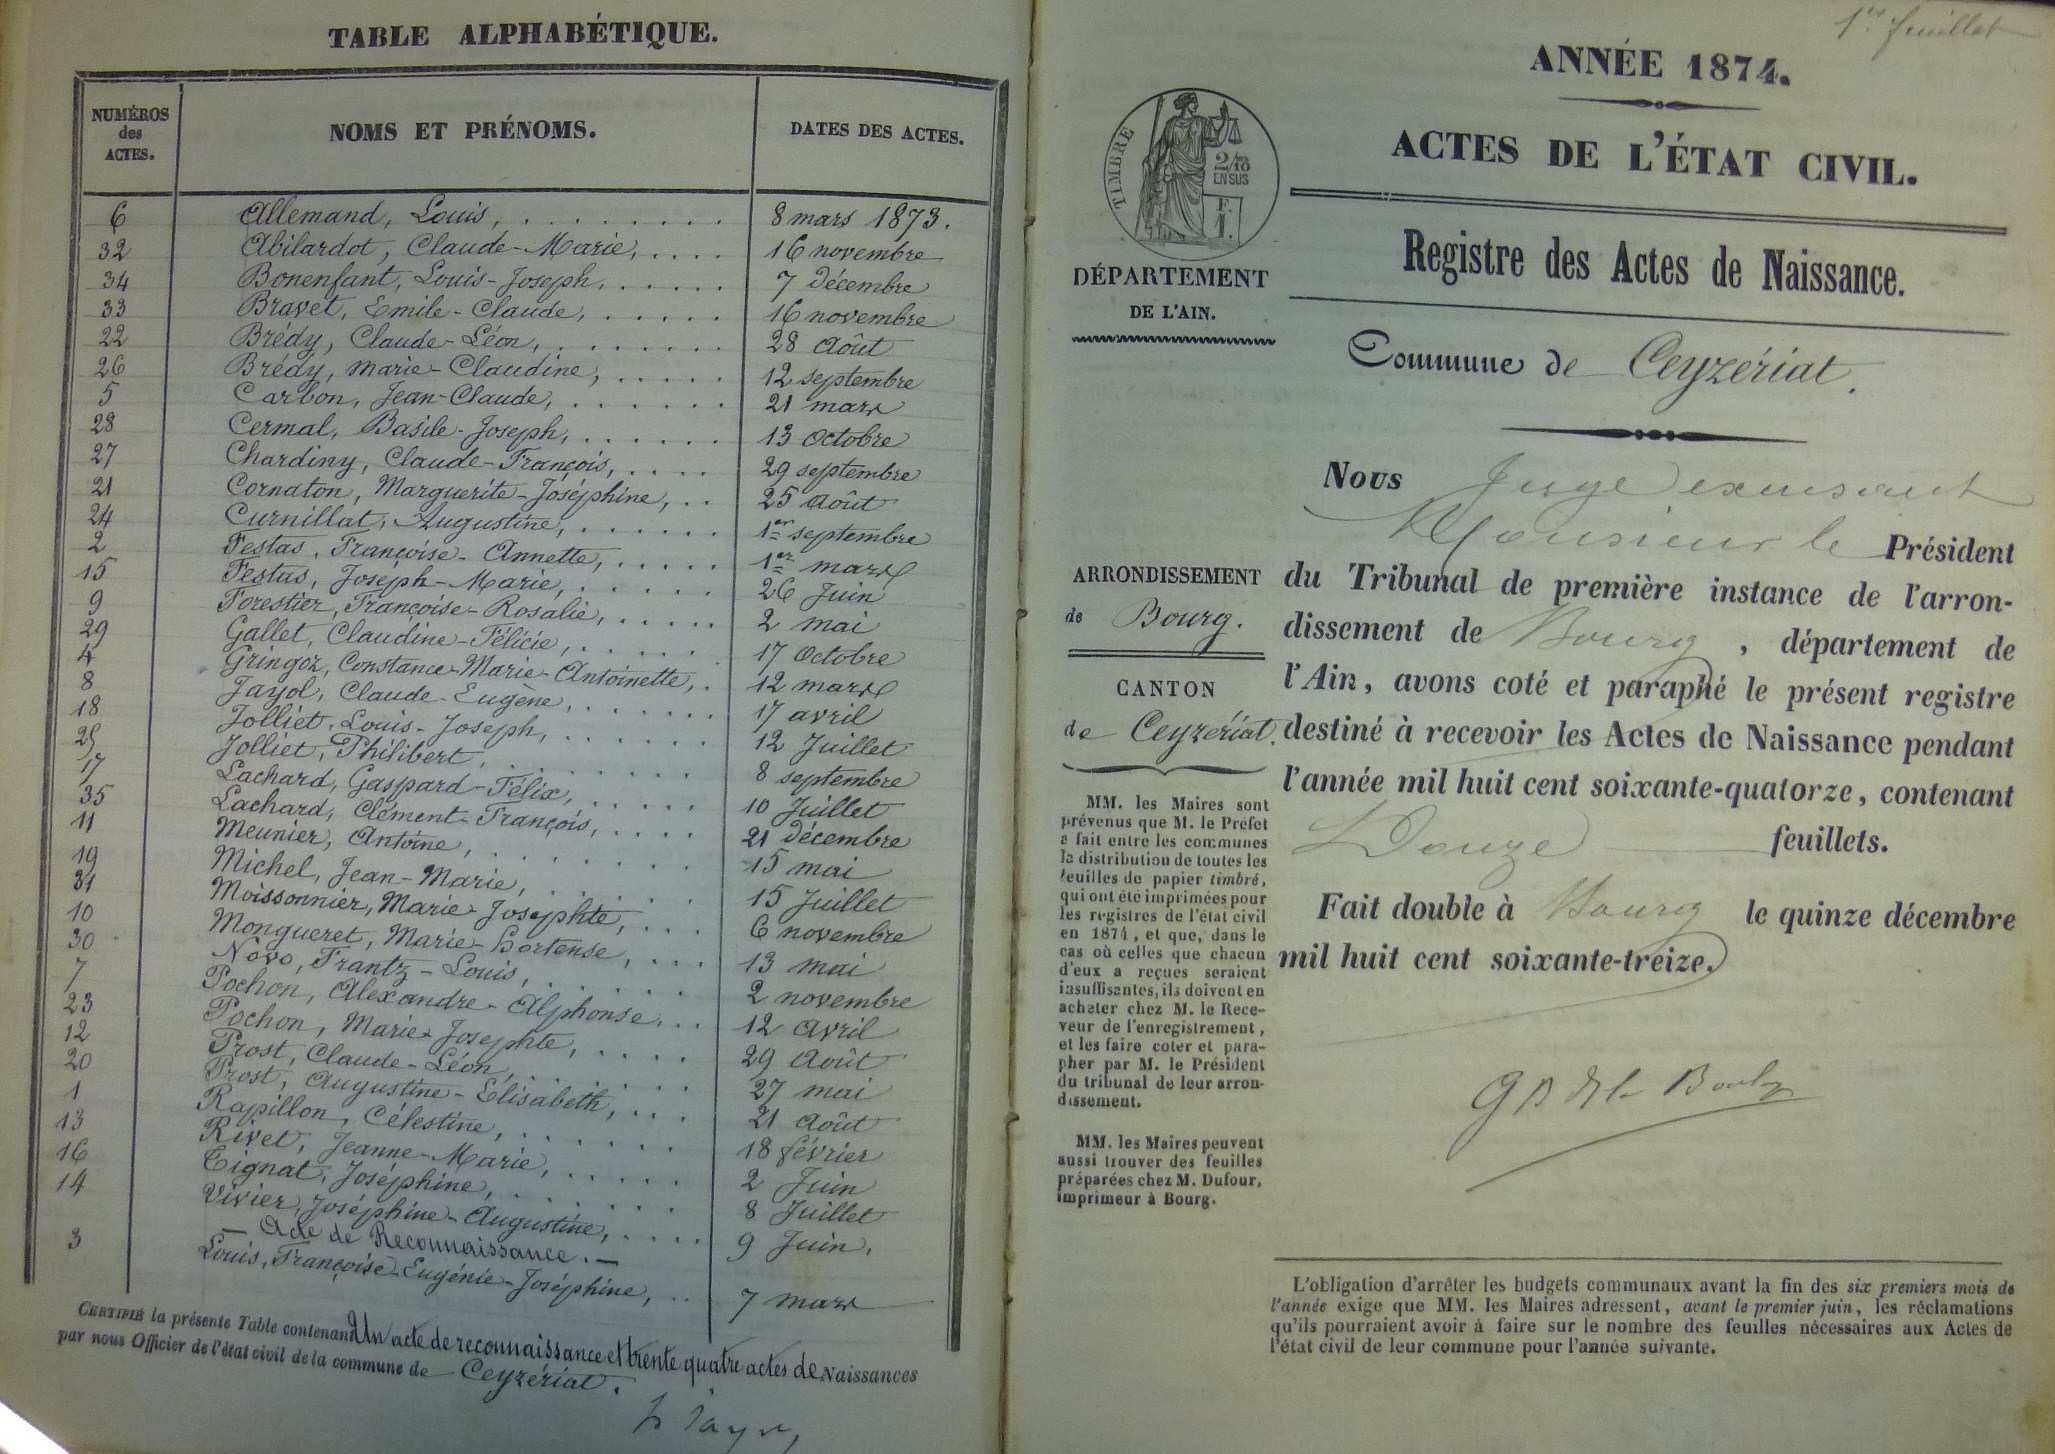 TABLE ALPHABÉTIQUE.
NUMÉROS des ACTES. NOMS ET PRÉNOMS. DATES DES ACTES.
6 Allemand, Louis, 8 mars 1873.
32 Abilardot, Claude-Marie, 16 novembre
34 Bonenfant, Louis-Joseph, 7 Décembre
33 Bravet, Emile-Claude, 16 novembre
22 Brédy, Claude-Léon, 28 Août
26 Brédy, Marie-Claudine, 12 septembre
5 Carbon, Jean-Claude, 21 mars
28 Cermal, Basile-Joseph, 13 Octobre
27 Chardiny, Claude-François, 29 septembre
21 Cornaton, Marguerite-Joséphine, 25 Août
24 Curnillat, Augustine, 1er septembre
2 Festas, Françoise-Annette, 1er mars
15 Festas, Joseph-Marie, 26 Juin
9 Forestier, Françoise-Rosalie, 2 mai
29 Gallet, Claudine-Félicie, 17 Octobre
4 Gringoz, Constance-Marie-Antoinette, 12 mars
8 Jayol, Claude-Eugène, 17 avril
18 Jolliet, Louis-Joseph, 12 Juillet
25 Jolliet, Philibert, 8 septembre
17 Lachard, Gaspard-Félix, 10 Juillet
35 Lachard, Clément-François, 21 Décembre
11 Meunier, Antoine, 15 mai
19 Michel, Jean-Marie, 15 Juillet
31 Moissonnier, Marie-Josephte, 6 novembre
10 Mongueret, Marie-Hortense, 13 mai
30 Novo, Frantz-Louis, 2 novembre
7 Pochon, Alexandre-Alphonse, 12 Avril
23 Pochon, Marie-Josephte, 29 Août
12 Prost, Claude-Léon, 27 mai
20 Prost, Augustine-Elisabeth, 21 Août
1 Rapillon, Célestine, 18 février
13 Rivet, Jeanne-Marie, 2 Juin
16 Tignat, Joséphine, 8 Juillet
14 Vivier, Joséphine-Augustine, 9 Juin.
— Acte de Reconnaissance. —
3 Louis, Françoise-Eugénie-Joséphine, 7 mars
CERTIFIÉ la présente Table contenant Un acte de reconnaissance et trente quatre actes de Naissances
par nous Officier de l'état civil de la commune de Ceyzériat.
1er feuillet
ANNÉE 1874.
ACTES DE L'ÉTAT CIVIL.
TIMBRE
2/10
EN SUS
F.
1.
Registre des Actes de Naissance.
DÉPARTEMENT
DE L'AIN.
Commune de Ceyzériat.
Nous Juge exerçant
Monsieur le Président
du Tribunal de première instance de l'arron-
dissement de Bourg, département de
l'Ain, avons coté et paraphé le présent registre
destiné à recevoir les Actes de Naissance pendant
l'année mil huit cent soixante-quatorze, contenant
Douze feuillets.
Fait double à Bourg le quinze décembre
mil huit cent soixante-treize.
ARRONDISSEMENT
de Bourg.
CANTON
de Ceyzériat.
MM. les Maires sont
prévenus que M. le Préfet
a fait entre les communes
la distribution de toutes les
feuilles de papier timbré,
qui ont été imprimées pour
les registres de l'état civil
en 1874, et que, dans le
cas où celles que chacun
d'eux a reçues seraient
insuffisantes, ils doivent en
acheter chez M. le Rece-
veur de l'enregistrement,
et les faire coter et para-
pher par M. le Président
du tribunal de leur arron-
dissement.
MM. les Maires peuvent
aussi trouver des feuilles
préparées chez M. Dufour,
imprimeur à Bourg.
L'obligation d'arrêter les budgets communaux avant la fin des six premiers mois de
l'année exige que MM. les Maires adressent, avant le premier juin, les réclamations
qu'ils pourraient avoir à faire sur le nombre des feuilles nécessaires aux Actes de
l'état civil de leur commune pour l'année suivante.